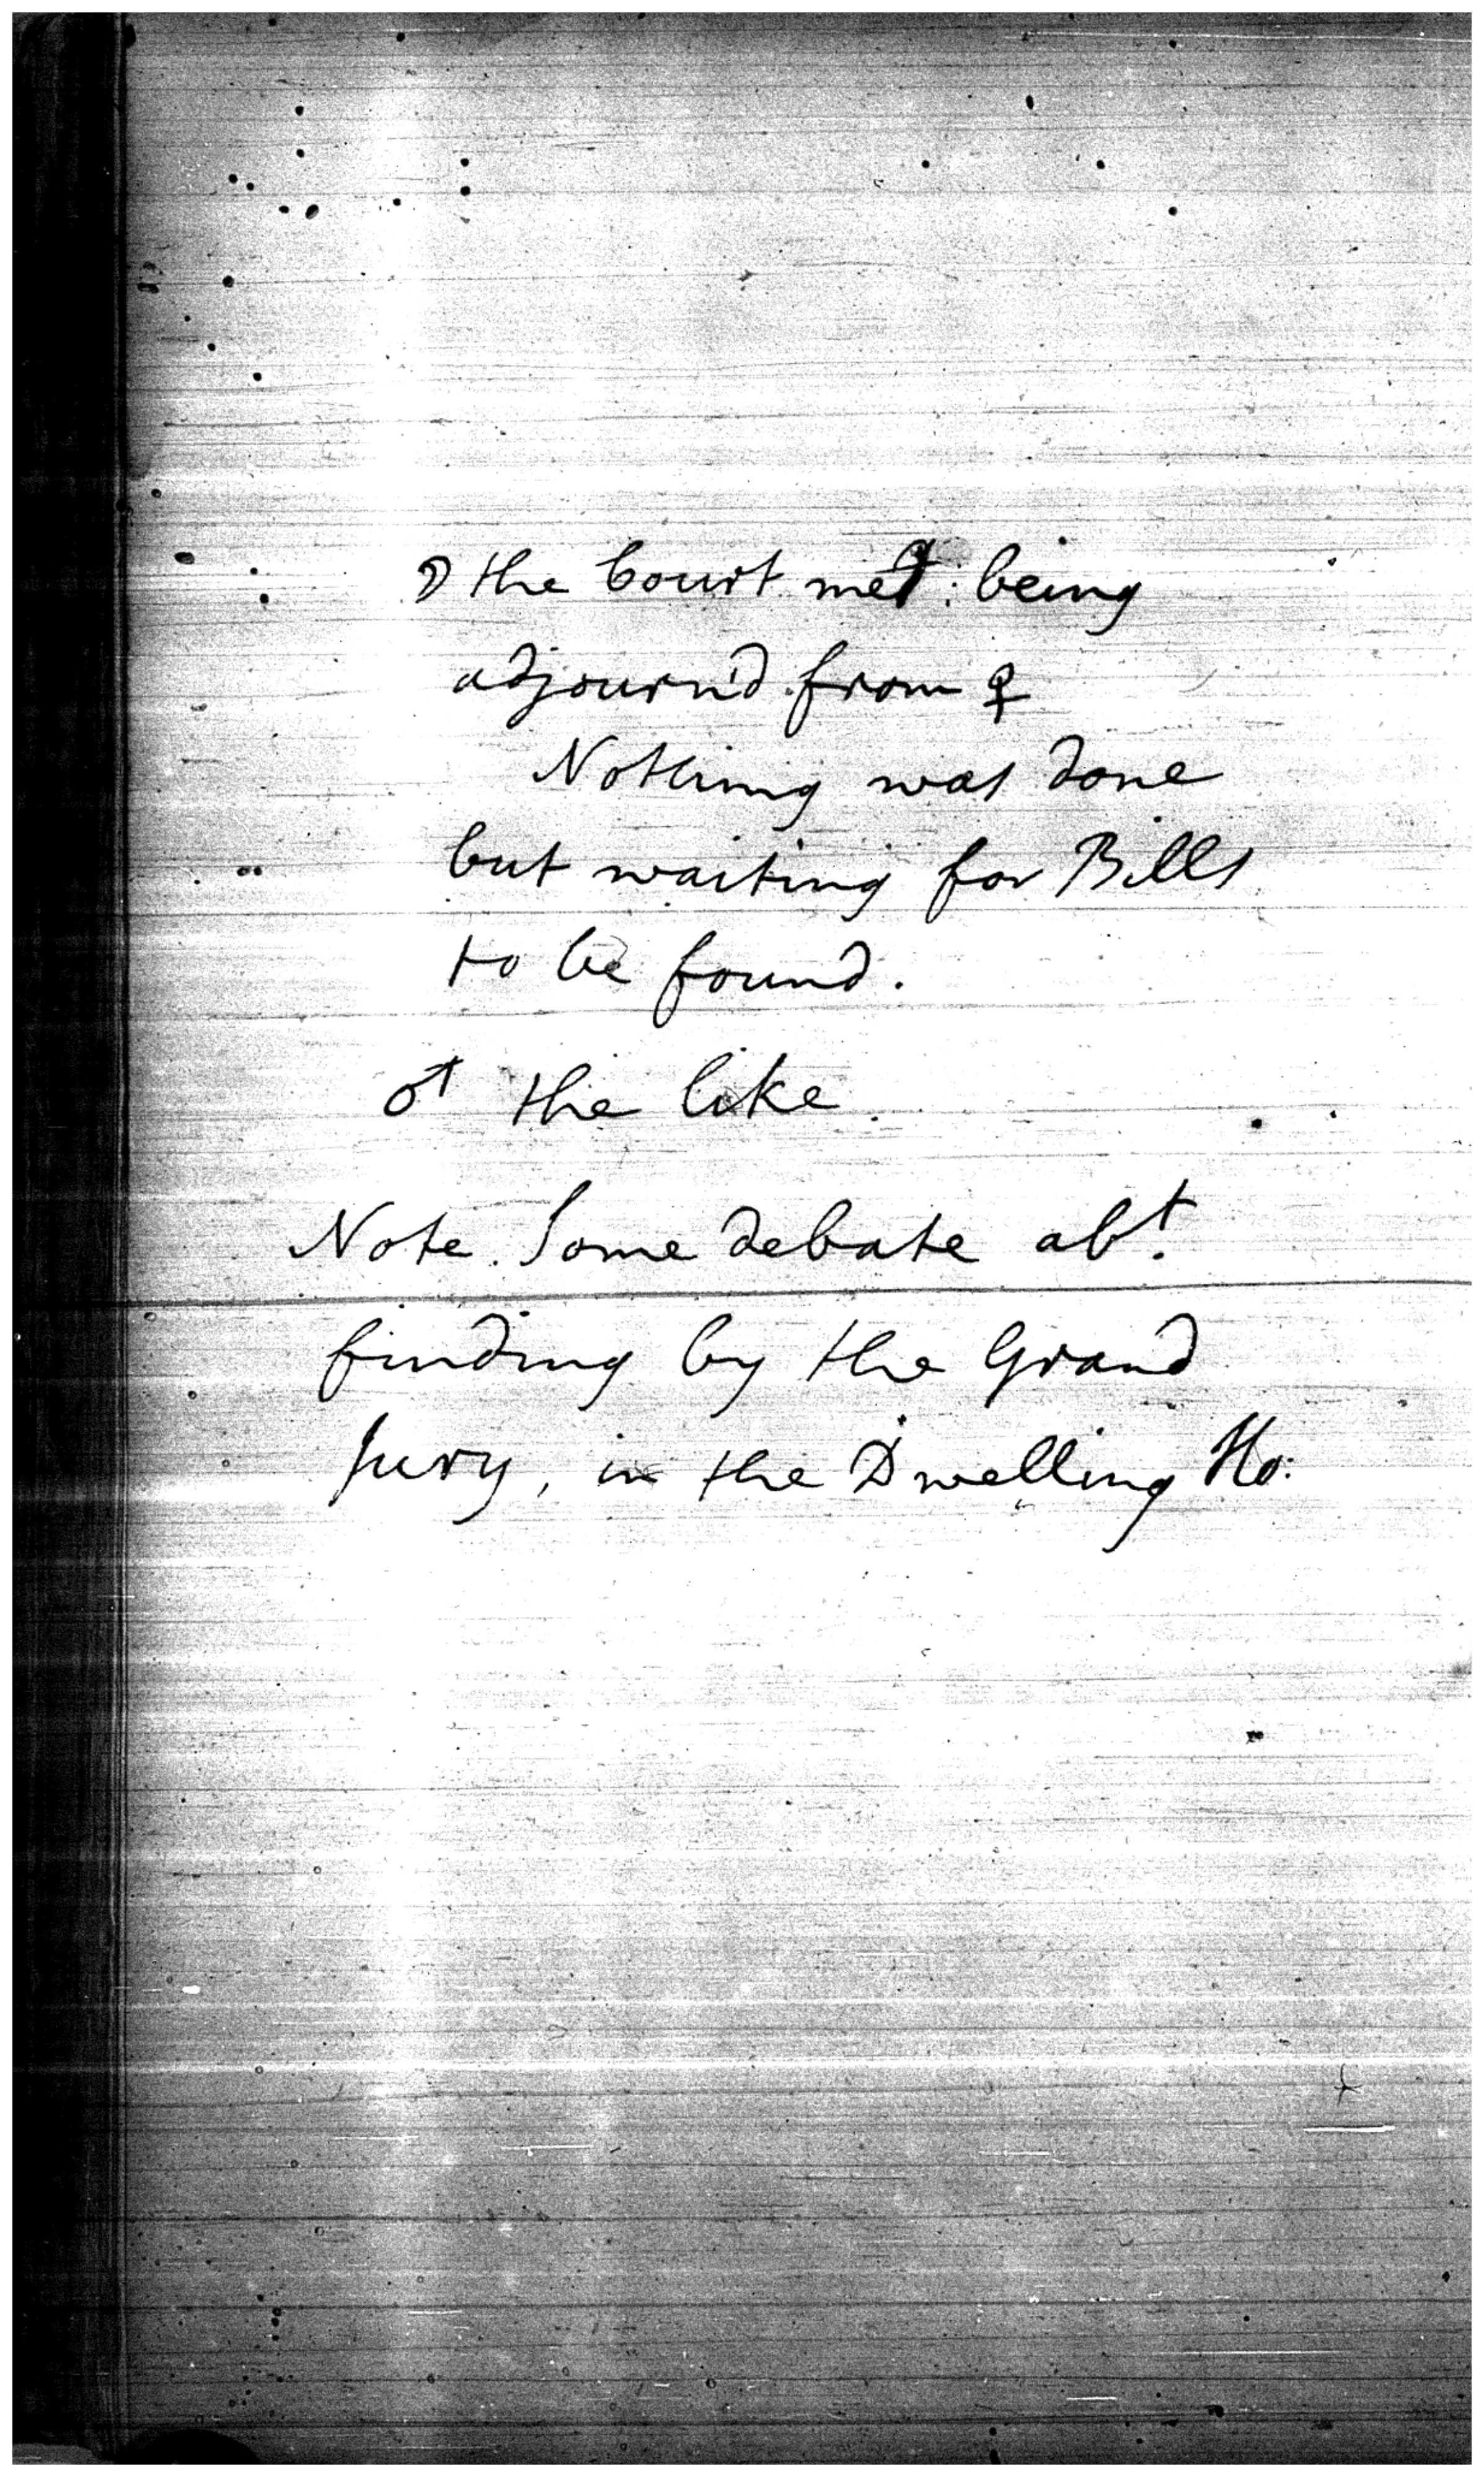 ☽ the Court met: being
adjourn'd from ♀
Nothing was done
but waiting for Bills
to be found.
♂ the like.
Note. Some debate abt.
finding by the Grand
Jury, in the Dwelling Ho: